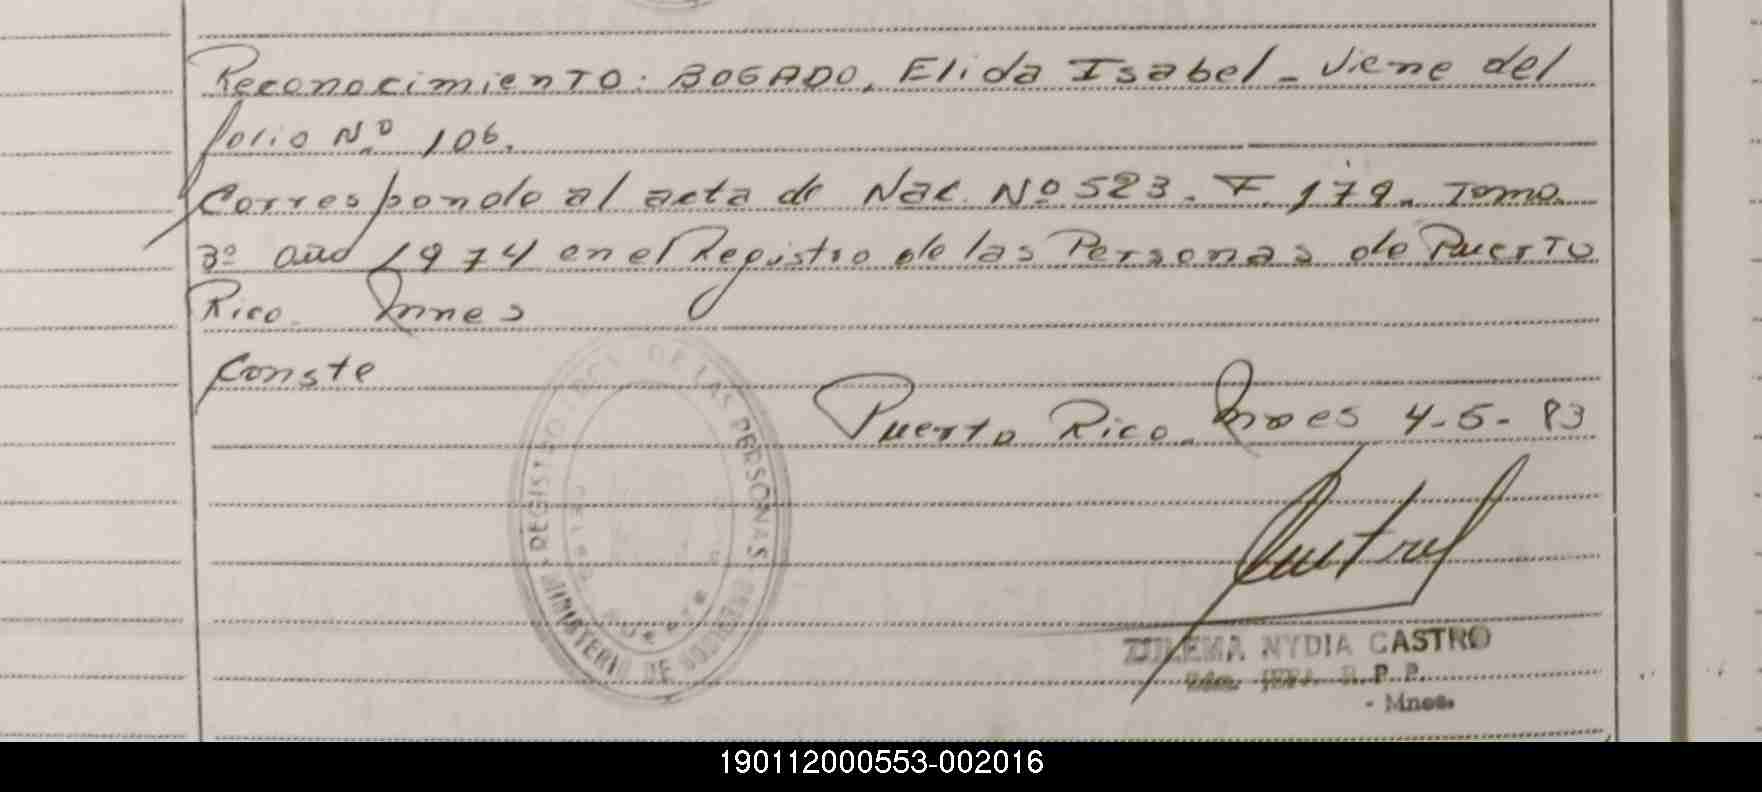 Reconocimiento: BOGADO, Elida Isabel - Viene del
folio Nº 106.
Corresponde al acta de Nac. Nº 523. F. 179. Tomo
3º año 1974 en el Registro de las Personas de Puerto
Rico. Mnes
Conste
Puerto Rico. Mnes 4-5-83
REGISTRO PCI. DE LAS PERSONAS
MINISTERIO DE GOBIERNO
ZULEMA NYDIA CASTRO
R.P.P.
- Mnes.
190112000553-002016